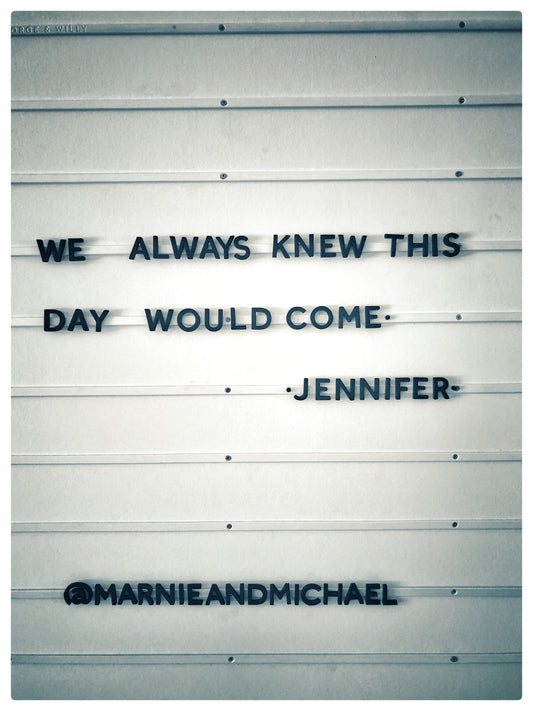 ORGE & WILLY
WE ALWAYS KNEW THIS
DAY WOULD COME.
·JENNIFER·
@MARNIEANDMICHAEL